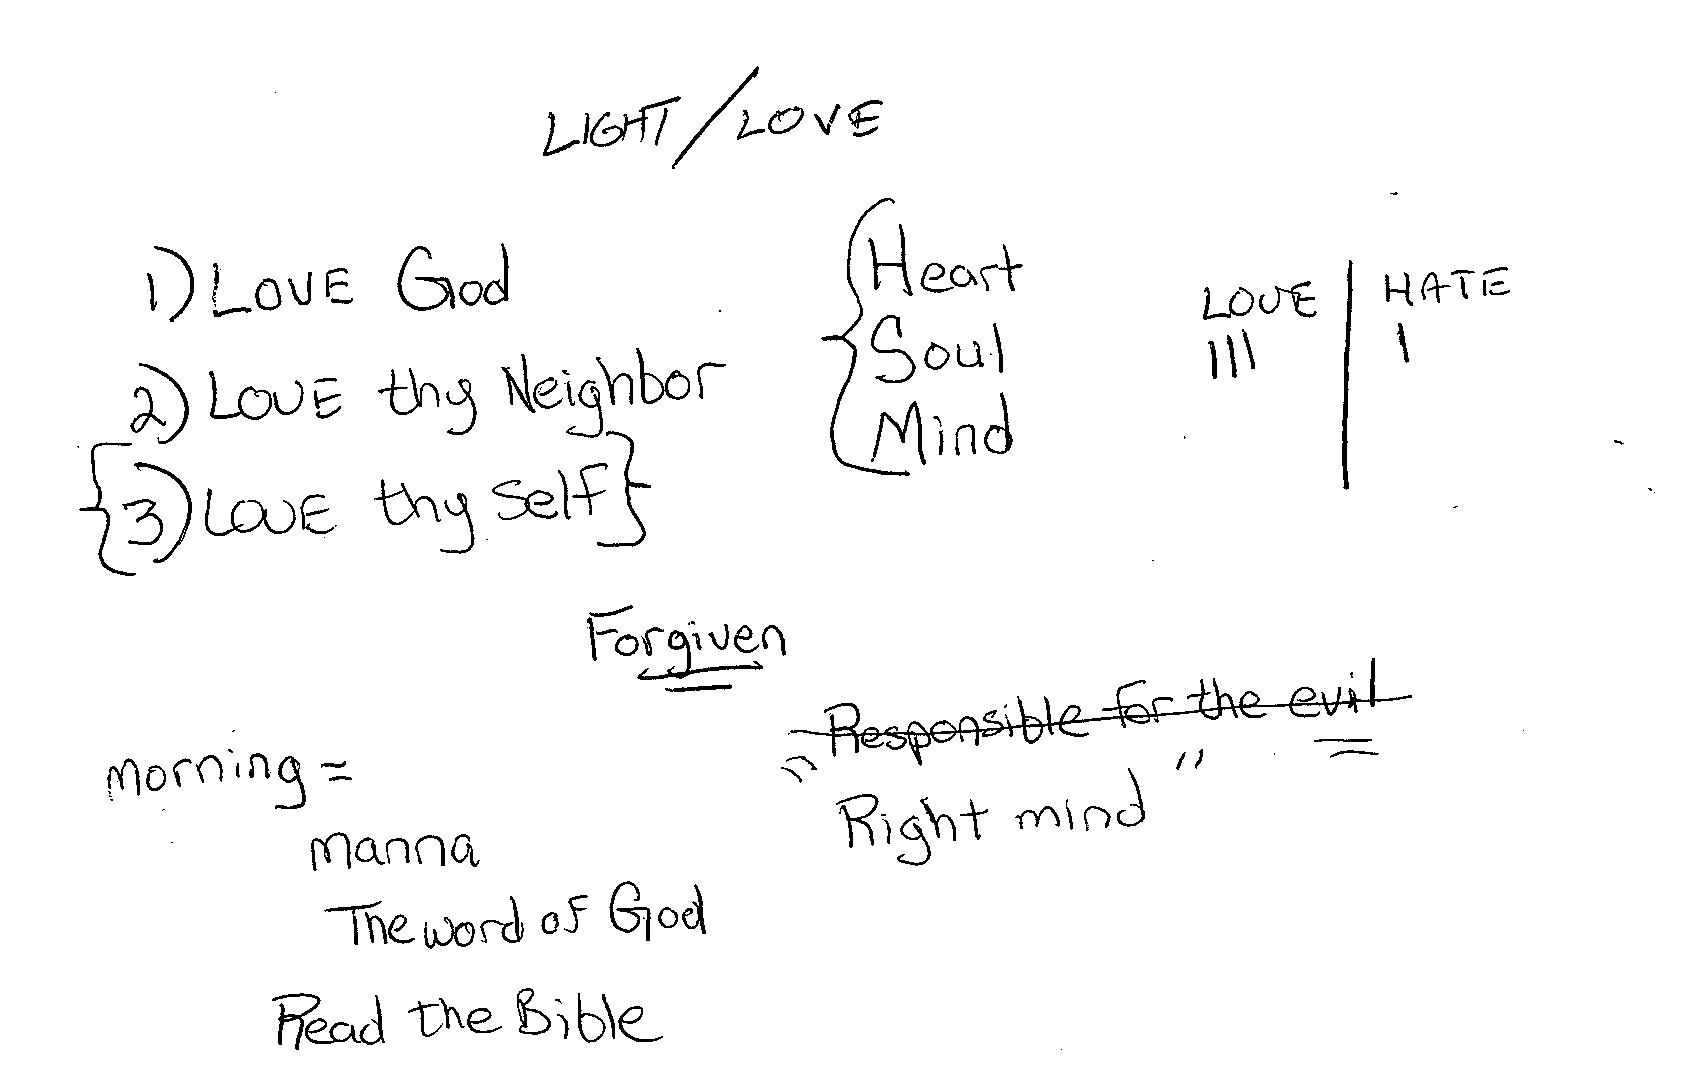 LIGHT/LOVE
1) LOVE God
2) LOVE thy Neighbor
{3) LOVE thy Self}
{Heart
Soul
Mind
LOVE | HATE
III | I
Forgiven
Responsible for the evil
"Right mind"
morning =
manna
The word of God
Read the Bible